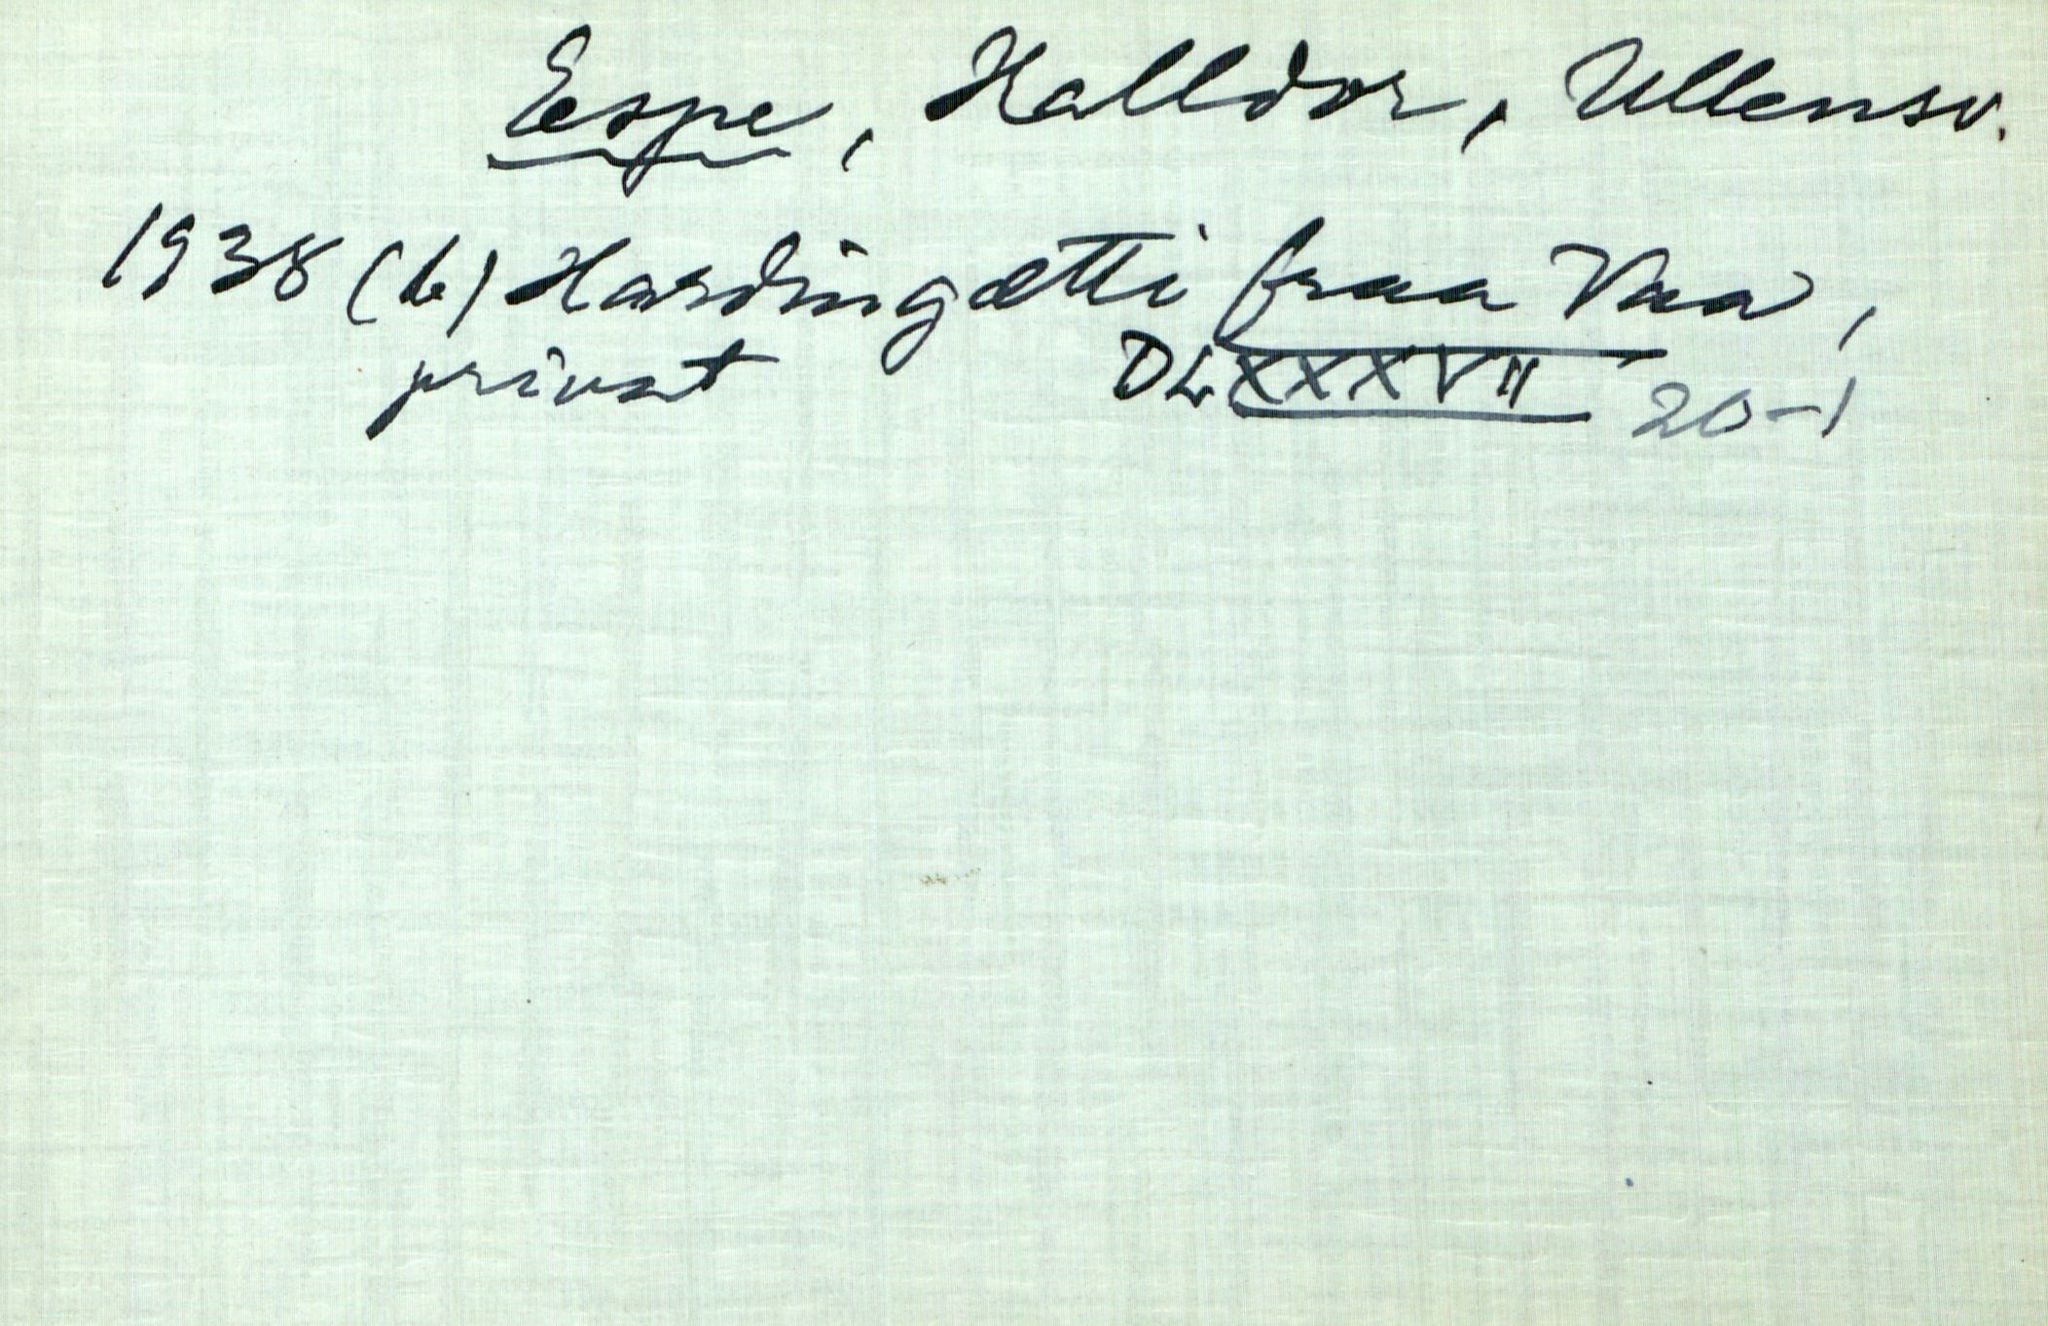 Espe, Halldor, Ullensv.
1938 (b) Hardingætti fraa Vaa,
privat DLXXXVII 20-1